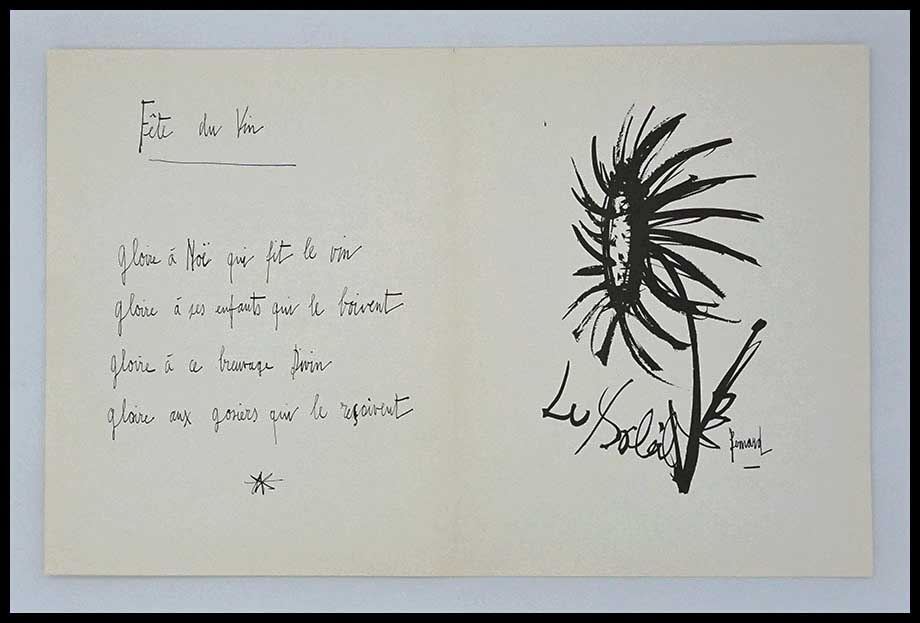 Fête du Vin
gloire à Noë qui fit le vin
gloire à ses enfants qui le boivent
gloire à ce breuvage Divin
gloire aux gosiers qui le reçoivent
Le Soleil
Bernard